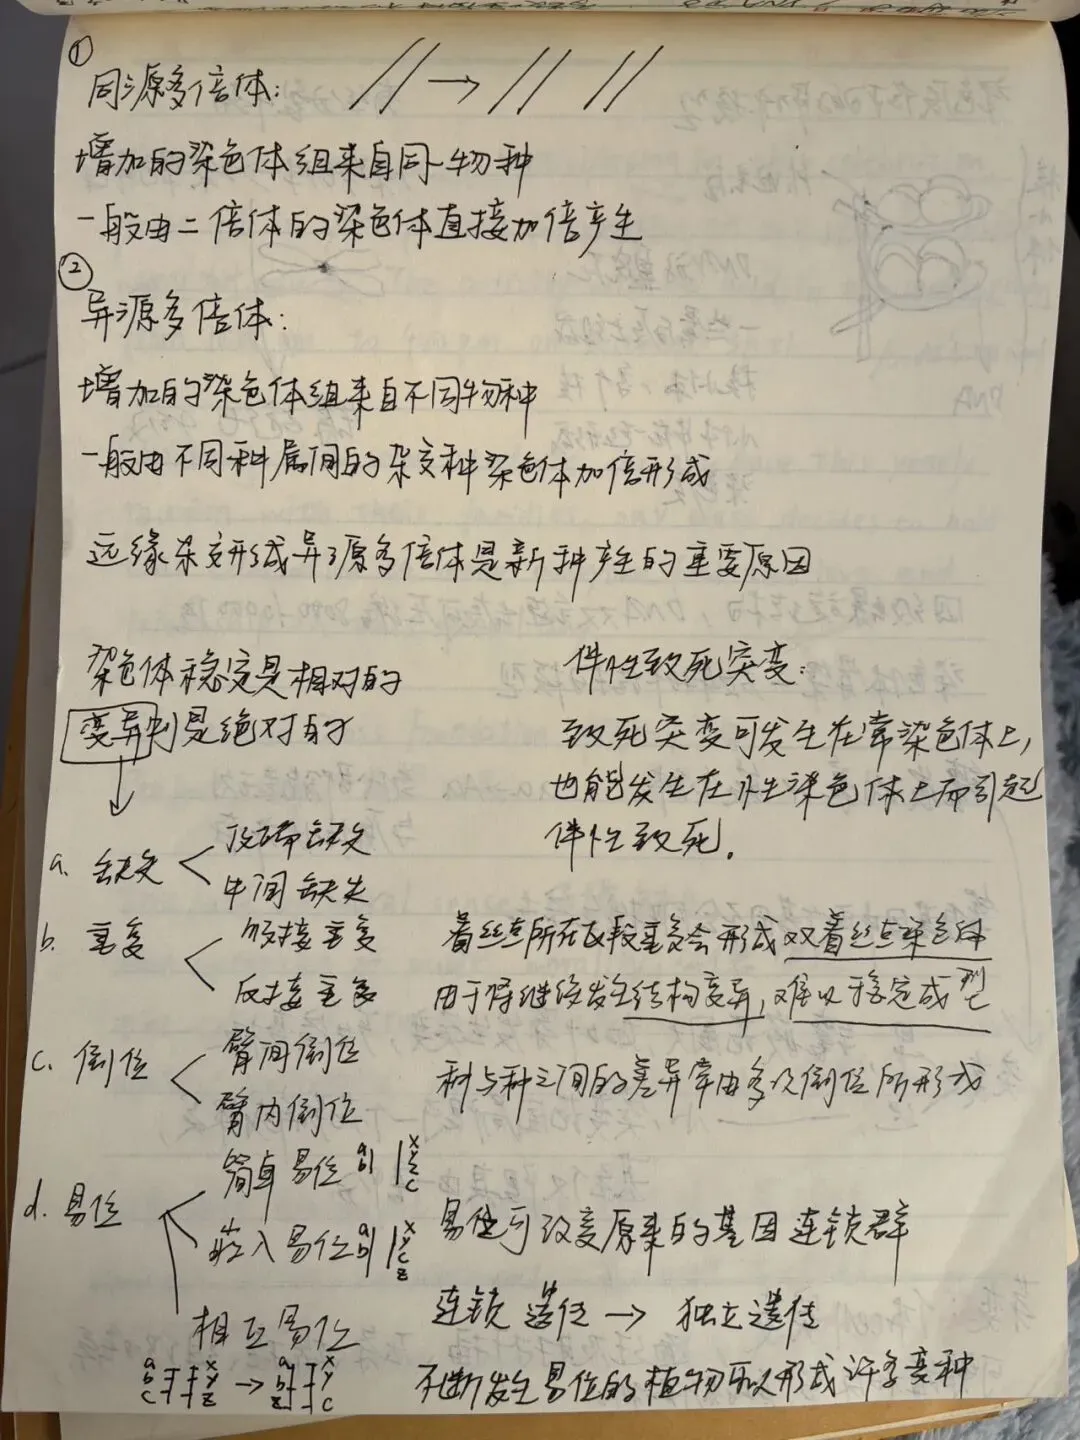 ①
同源多倍体：
增加的染色体组来自同一物种
一般由二倍体的染色体直接加倍产生
②
异源多倍体：
增加的染色体组来自不同物种
一般由不同种属间的杂交种染色体加倍形成
远缘杂交形成异源多倍体是新种产生的重要原因
染色体稳定是相对的
变异则是绝对的
a. 缺失
顶端缺失
中间缺失
b. 重复
顺接重复
反接重复
c. 倒位
臂间倒位
臂内倒位
d. 易位
简单易位 a b x y z c
嵌入易位 a b x y c z
相互易位
a b c x y z → a b z x y c
伴性致死突变：
致死突变可发生在常染色体上，
也能发生在性染色体上而引起
伴性致死。
着丝点所在区段重复会形成双着丝点染色体
由于将继续发生结构变异，难以稳定成型
种与种之间的差异常由多次倒位所形成
易位可改变原来的基因连锁群
连锁遗传 → 独立遗传
不断发生易位的植物可以形成许多变种